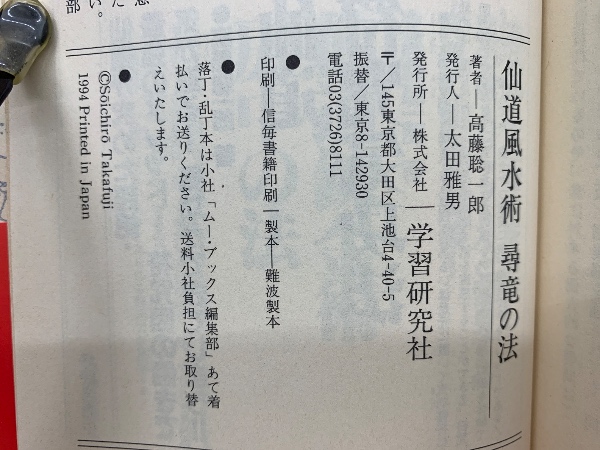 仙道風水術 尋竜の法
著者―高藤聡一郎
発行人―太田雅男
発行所―株式会社 学習研究社
〒/145東京都大田区上池台4-40-5
振替/東京8-142930
電話03(3726)8111
●
印刷―信毎書籍印刷 製本―難波製本
●
落丁・乱丁本は小社「ムー・ブックス編集部」あて着
払いでお送りください。送料小社負担にてお取り替
えいたします。
●
©Sōichirō Takafuji
1994 Printed in Japan
い。
部